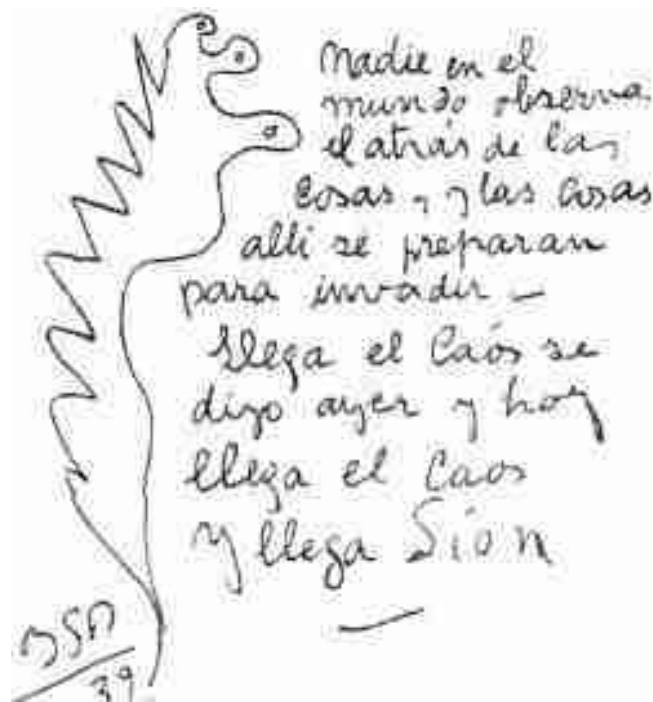 Nadie en el
mundo observa
el atrás de las
cosas, y las cosas
alli se preparan
para invadir —
Llega el Caos se
dijo ayer y hoy
llega el Caos
y llega Sion
BSP
39